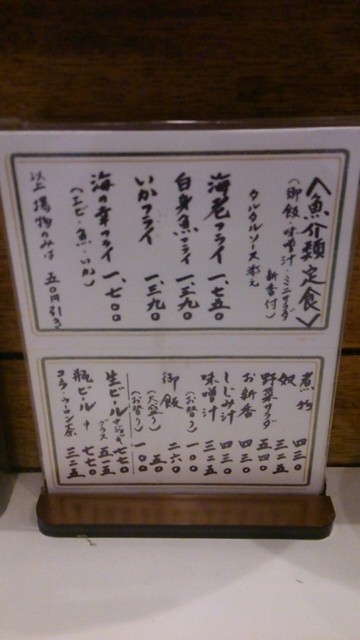 〈魚介類定食〉
(御飯・味噌汁・ミニサラダ 新香付)
タルタルソース添え
海老フライ 一、七五〇
白身魚フライ 一、三九〇
いかフライ 一、三九〇
海の幸フライ 一、七〇〇
(エビ・魚・いか)
以上 揚物のみは 五〇円引き
煮物 四三〇
奴 三二五
野菜サラダ 五四〇
お新香 四三〇
しじみ汁 四三〇
味噌汁 三二五
(お替り) 一〇〇
御飯 二六〇
(大盛り) 五〇
(お替り) 一〇〇
生ビール 中ジョッキ 七七〇
グラス 五一五
瓶ビール 中 七七〇
コーラ・ウーロン茶 三二五